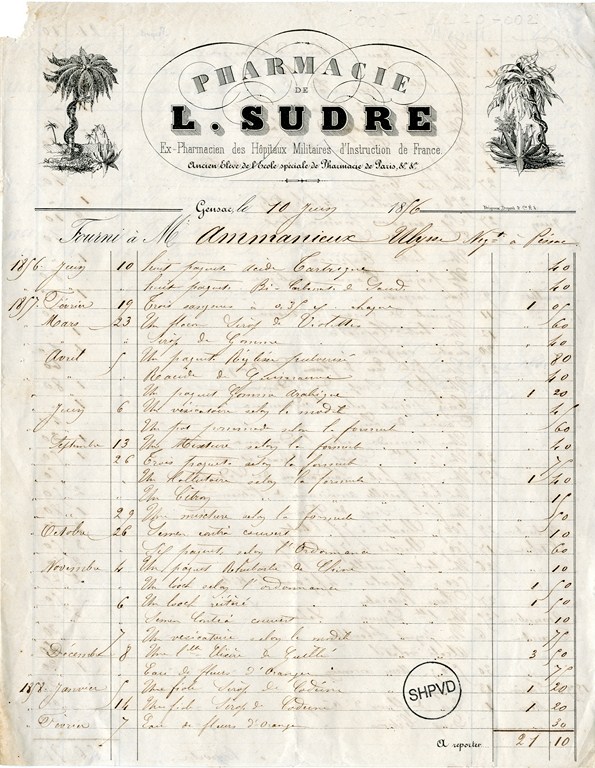 PHARMACIE
DE
L. SUDRE
Ex-Pharmacien des Hôpitaux Militaires d'Instruction de France.
Ancien Elève de l'Ecole spéciale de Pharmacie de Paris, &. &.
Gensac, le 10 Juin 1856
Fourni à Mr Ammanieux Ulysse Negt à Pessac
1856 Juin 10 huit paquets acide Tartrique 40
huit paquets Bi-Carbonate de Soude 40
1857 Février 19 Trois sangsues à 0,35 chaque 1 05
Mars 23 Un flacon Sirop de Violettes 60
" " Sirop de Gomme 40
Avril 5 Un paquet Réglisse pulverisé 80
" " Racine de Guimauve 40
" " Un paquet Gomme arabique 1 20
Juin 6 Un vésicatoire selon le modèle 45
Un pot pommade selon la formule 60
Septembre 13 Une Mixture selon la formule 40
26 Trois paquets selon la formule 75
Un selon la formule 1 40
Un Citron 15
29 Une mixture selon la formule 50
Octobre 26 Semen contra couvert 10
Six paquets selon l'Ordonnance 60
Novembre 4 Un paquet de 10
" Un look selon l'ordonnance 1 50
" 6 Un look réitéré 1 50
" Semen Contra couvert 10
" 7 Un vésicatoire selon le modèle 75
Décembre 8 Une Blle Elixir de Guillié 3 50
Eau de fleurs d'Oranger 75
1858 Janvier 5 Une fiole Sirop de Codéine 1 20
14 Une fiole Sirop de Codéine 1 20
Février 7 Eau de fleurs d'Oranger 30
A reporter 21 10
SHPVD